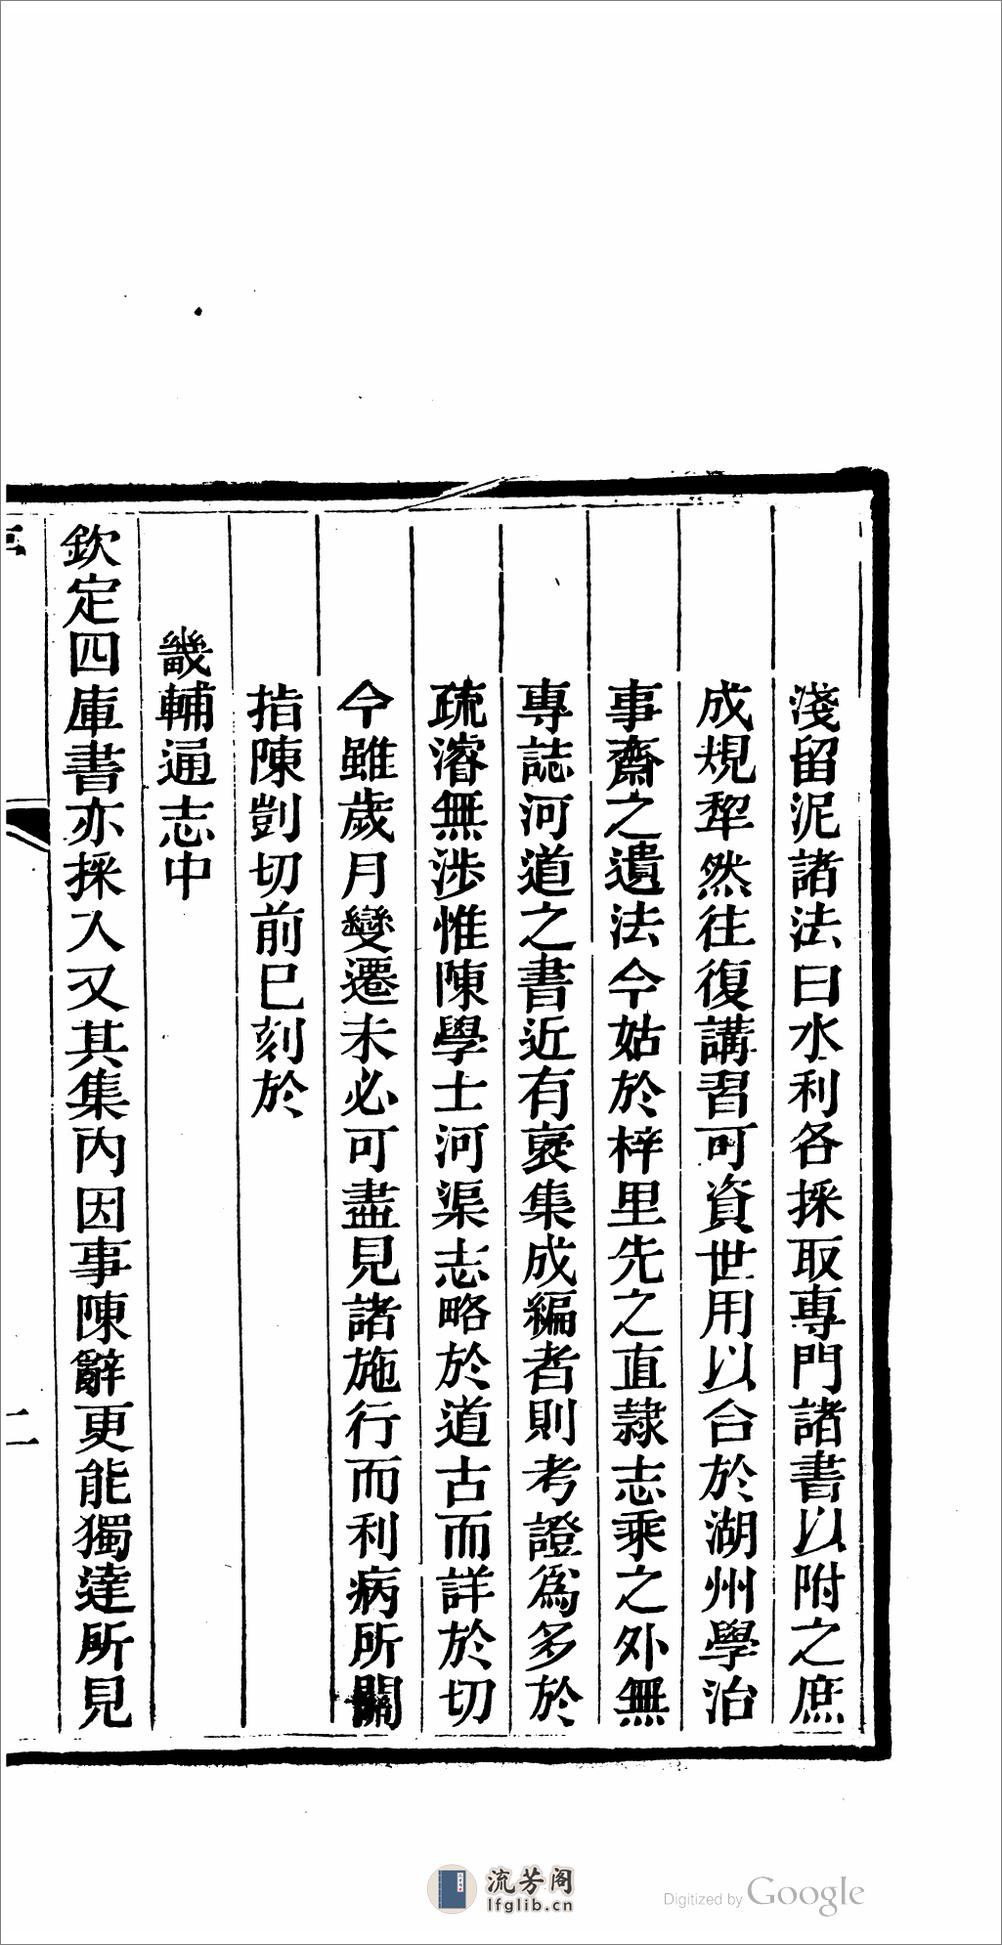 淺留泥諸法曰水利各採取專門諸書以附之庶
成規犂然往復講習可資世用以合於湖州學治
事齋之遺法今姑於梓里先之直隷志乘之外無
專誌河道之書近有裒集成編者則考證爲多於
疏濬無涉惟陳學士河渠志略於道古而詳於切
今雖歲月變遷未必可盡見諸施行而利病所關
指陳剴切前已刻於
畿輔通志中
欽定四庫書亦採入又其集內因事陳辭更能獨達所見
二
流芳阁
lfglib.cn
Digitized by Google